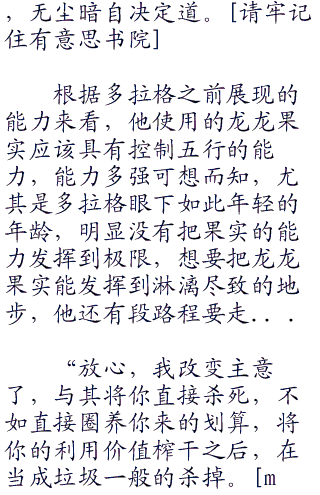 ，无尘暗自决定道。[请牢记
住有意思书院]
根据多拉格之前展现的
能力来看，他使用的龙龙果
实应该具有控制五行的能
力，能力多强可想而知，尤
其是多拉格眼下如此年轻的
年龄，明显没有把果实的能
力发挥到极限，想要把龙龙
果实能发挥到淋漓尽致的地
步，他还有段路程要走...
“放心，我改变主意
了，与其将你直接杀死，不
如直接圈养你来的划算，将
你的利用价值榨干之后，在
当成垃圾一般的杀掉。[m